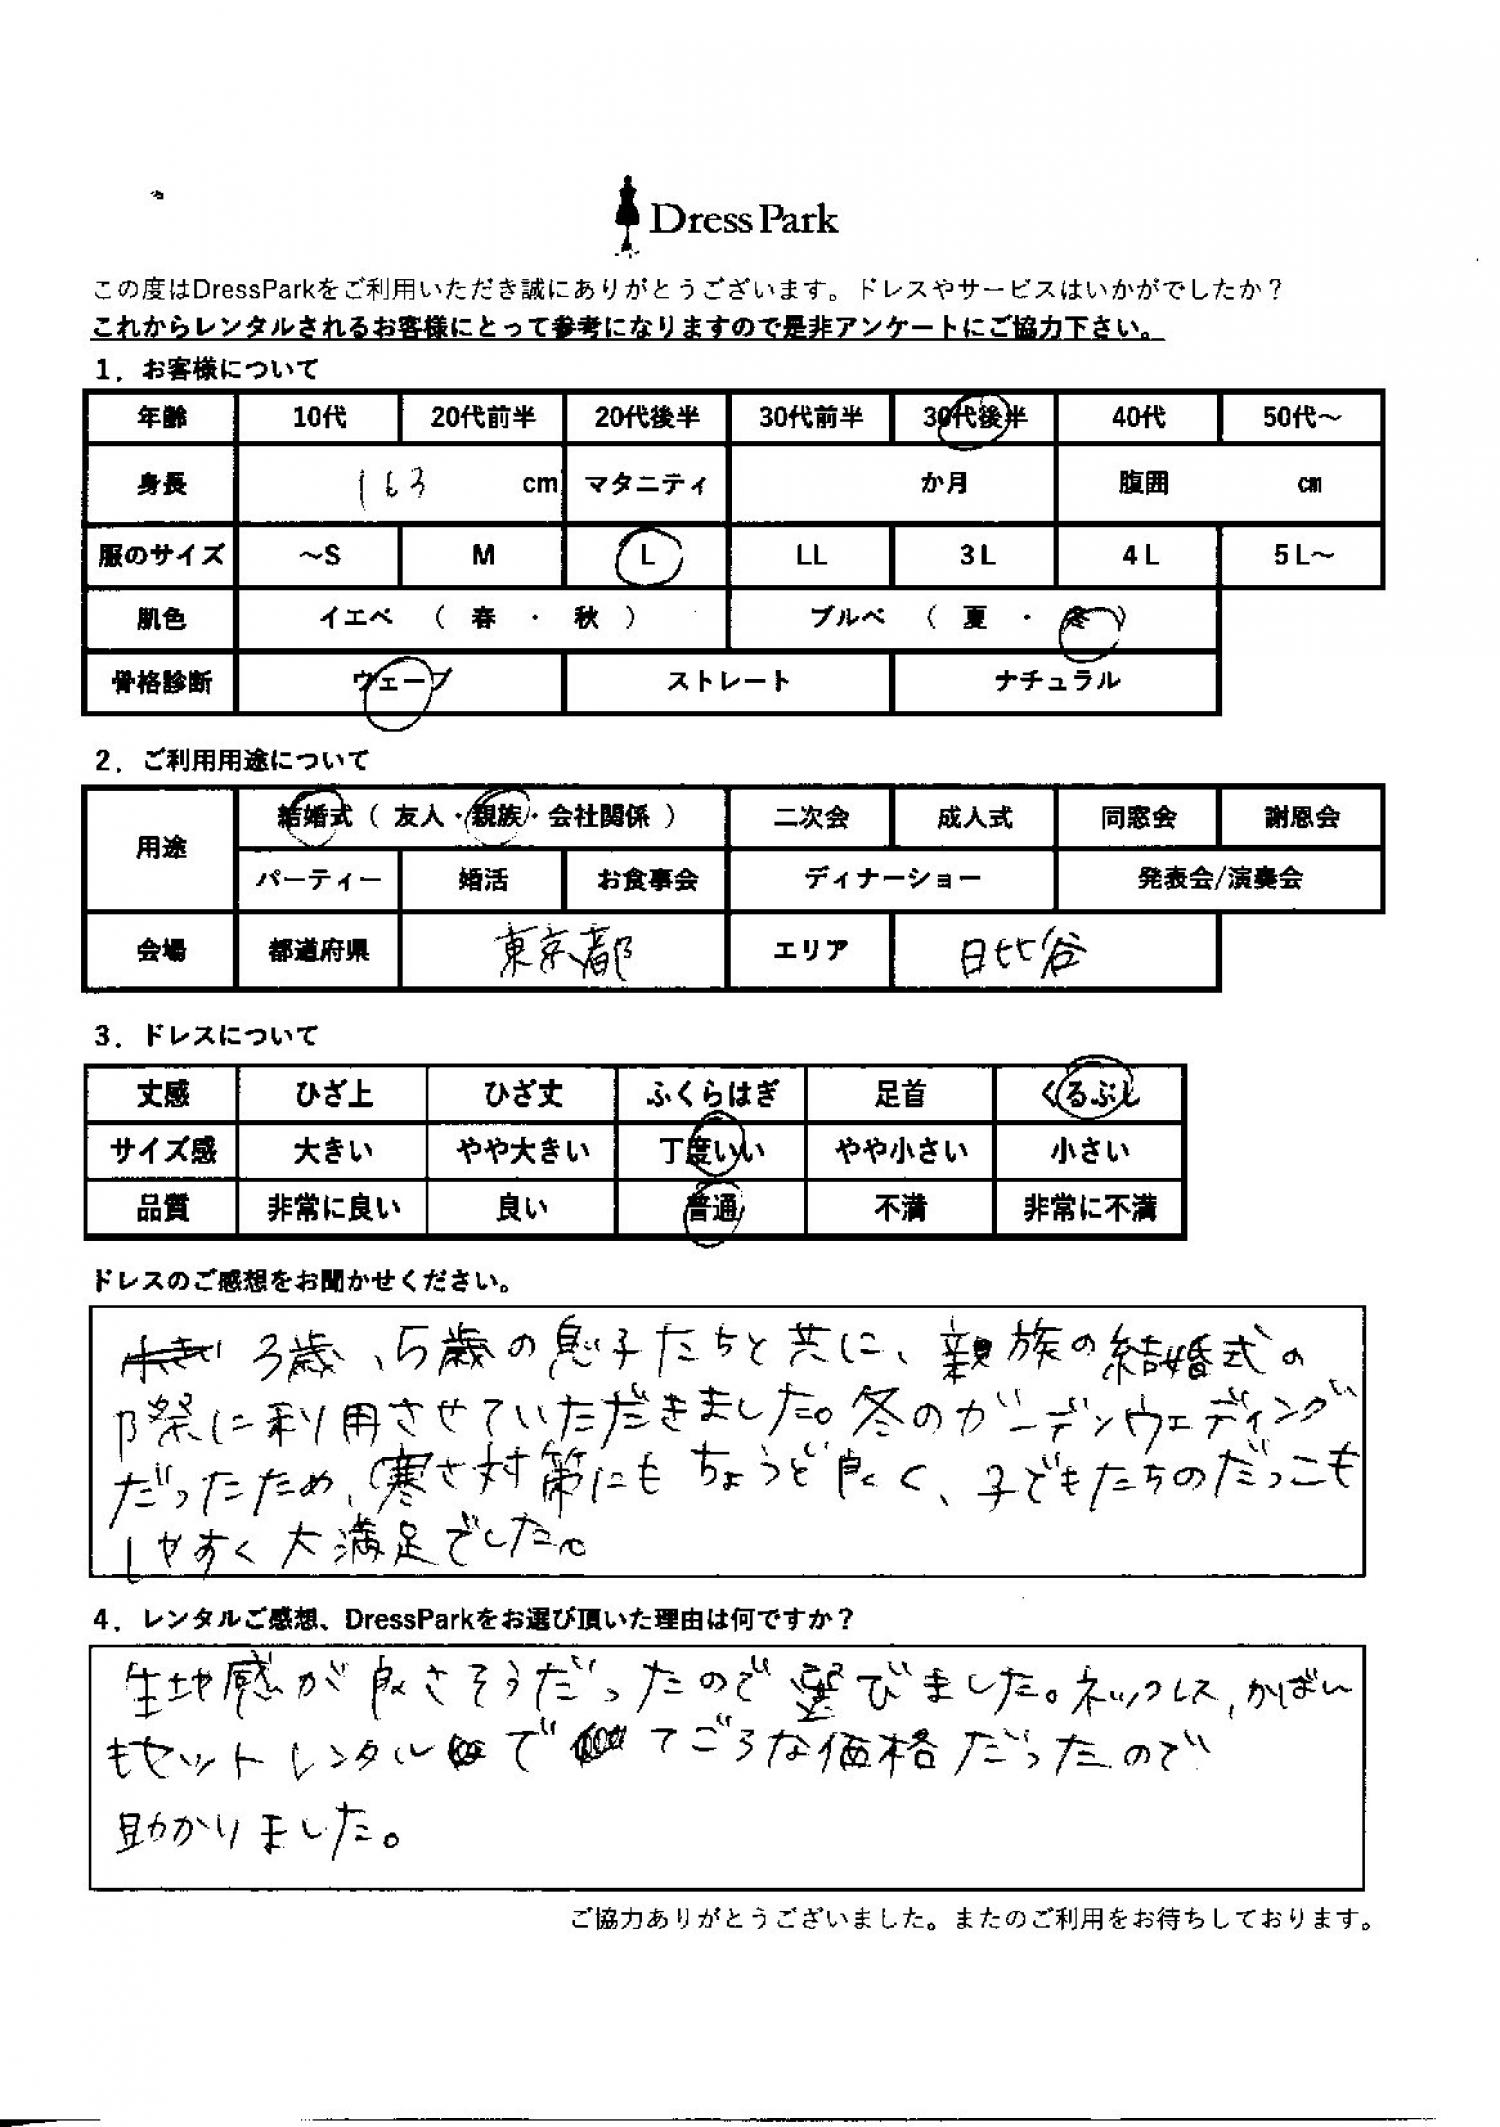 Dress Park
この度はDressParkをご利用いただき誠にありがとうございます。ドレスやサービスはいかがでしたか？
これからレンタルされるお客様にとって参考になりますので是非アンケートにご協力下さい。
1．お客様について
年齢 10代 20代前半 20代後半 30代前半 30代後半 40代 50代～
身長 163 cm マタニティ か月 腹囲 ㎝
服のサイズ ～S M L LL 3L 4L 5L～
肌色 イエベ （ 春 ・ 秋 ） ブルベ （ 夏 ・ 冬 ）
骨格診断 ウェーブ ストレート ナチュラル
2．ご利用用途について
用途 結婚式（ 友人・親族・会社関係 ） 二次会 成人式 同窓会 謝恩会
パーティー 婚活 お食事会 ディナーショー 発表会/演奏会
会場 都道府県 東京都 エリア 日比谷
3．ドレスについて
丈感 ひざ上 ひざ丈 ふくらはぎ 足首 くるぶし
サイズ感 大きい やや大きい 丁度いい やや小さい 小さい
品質 非常に良い 良い 普通 不満 非常に不満
ドレスのご感想をお聞かせください。
3歳、5歳の息子たちと共に、親族の結婚式の
際に利用させていただきました。冬のガーデンウェディング
だったため、寒さ対策にもちょうど良く、子どもたちのだっこも
しやすく大満足でした。
4．レンタルご感想、DressParkをお選び頂いた理由は何ですか？
生地感が良さそうだったので選びました。ネックレス，かばん
もセットレンタルで てごろな価格だったので
助かりました。
ご協力ありがとうございました。またのご利用をお待ちしております。